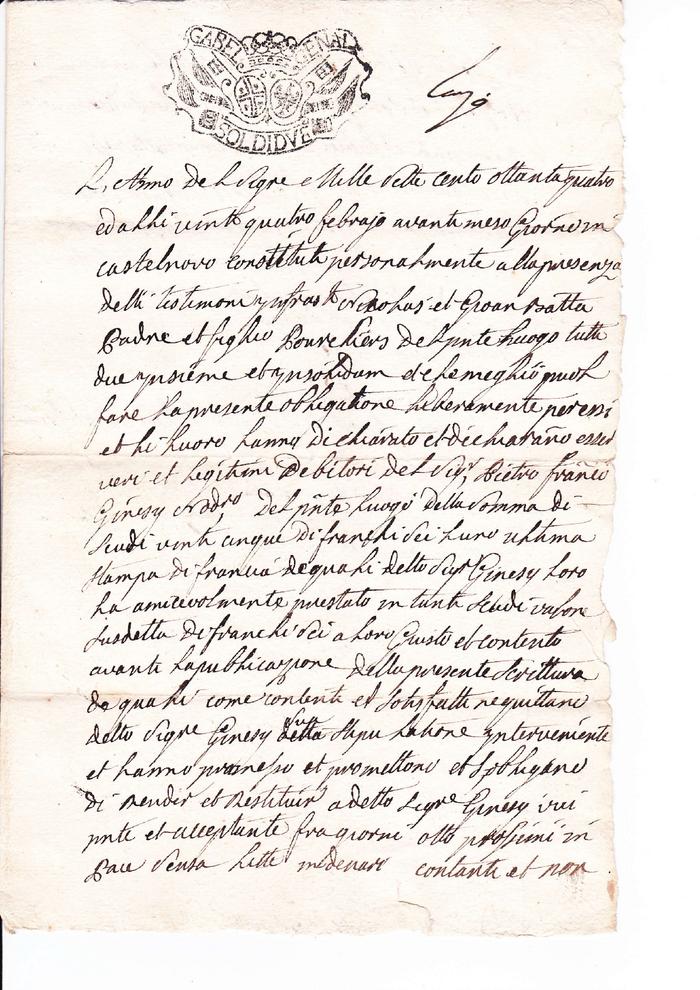 GABEL GENAL
SOLDI DVE
L'Anno del Sigre Mille Sette cento ottanta quatro
ed alli vinti quatro febrajo avanti meso Giorno in
castelnovo constituti personalmente alla presenza
delli testimoni infrasti Nicolas et Gioan Batta
Padre et figlio Pourchiers del pnte luogo tutti
due insieme et insolidum et che meglio puol
fare la presente obligatione liberamente per essi
et li luoro hanno dichiarato et dechiarano esser
veri et legitimi Debitori del Sigr Pietro franco
Ginesy del pnte luogo della Somma di
Scudi vinti cinque di franchi sei luno ultima
stampa di francia de quali detto Sigr Ginesy loro
ha amicevolmente prestato in tanti scudi valore
susdetta di franchi sei a loro Giusto et contento
avanti la publicazione della presente Scrittura
de quali come contenti et sotisfatti ne quittano
detto Sigre Ginesy stipulatione interveniente
et hanno promesso et promettono et sobligano
di Render et Restituir a detto Sigre Ginesy ivi
pnte et acceptante fra giorni otto prossimi in
Pace sensa litte in denaro contanti et non